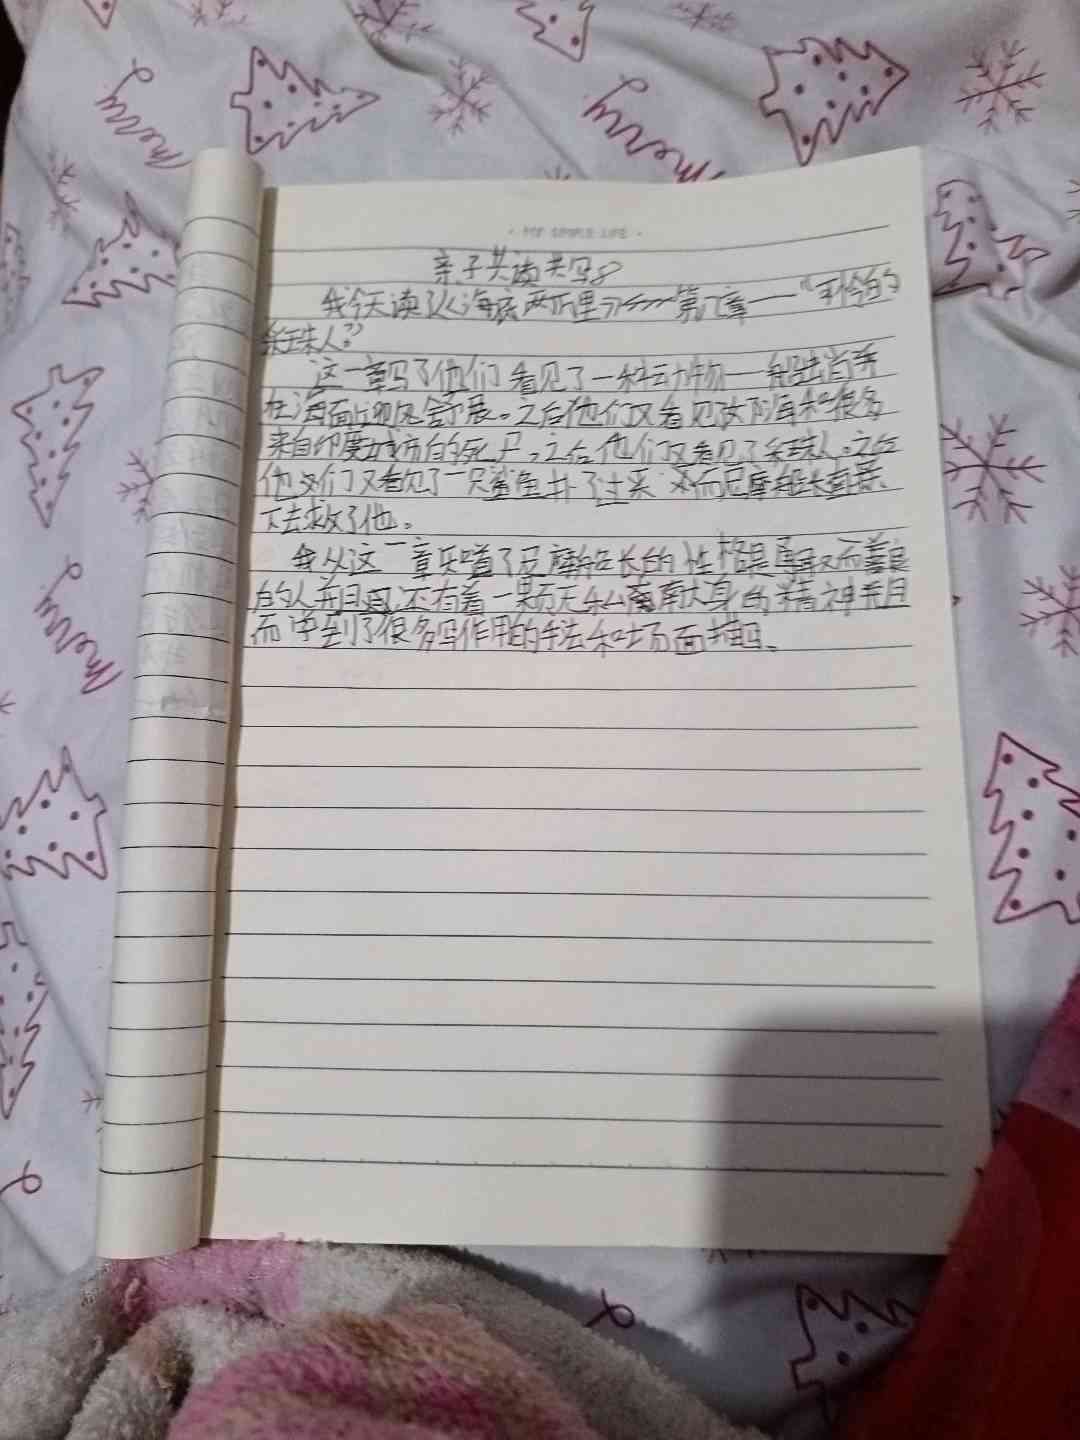 · MY SIMPLE LIFE ·
亲子共读共写
我今天读了《海底两万里》第 章——“可怜的
采珠人”
这一章写了他们看见了一种动物——船蛸
在海面迎风舒展。之后他们又看见 和很多
来自印度城市的死尸,之后他们又看见了采珠人。之后
他们又看见了一只鲨鱼扑了过来 而尼摩船长
下去救了他。
我从这一章知道了尼摩船长的性格是勇敢又而善良
的人并且还有着一颗无私 的精神并且
而学到了很多写作用的手法和场面描写。